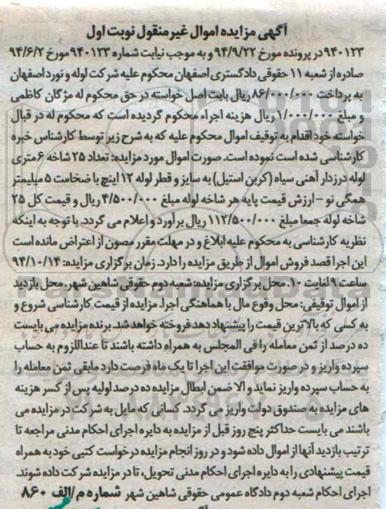 آگهی مزایده اموال غیر منقول نوبت اول
۹۴۰۱۲۳ در پرونده مورخ ۹۴/۹/۲۲ و به موجب نیابت شماره ۹۴۰۱۲۳ مورخ ۹۴/۶/۲
صادره از شعبه ۱۱ حقوقی دادگستری اصفهان محکوم علیه شرکت لوله و نورد اصفهان
به پرداخت ۸۶/۰۰۰/۰۰۰ ریال بابت اصل خواسته در حق محکوم له مژگان کاظمی
و مبلغ ۱/۰۰۰/۰۰۰ ریال هزینه اجراء محکوم گردیده است که محکوم له در قبال
خواسته خود اقدام به توقیف اموال محکوم علیه که به شرح زیر توسط کارشناس خبره
کارشناسی شده است نموده است. صورت اموال مورد مزایده: تعداد ۲۵ شاخه ۶ متری
لوله درزدار آهنی سیاه (کربن استیل) به سایز و قطر لوله ۱۲ اینچ با ضخامت ۵ میلیمتر
همگی نو - ارزش قیمت پایه هر شاخه لوله مبلغ ۴/۵۰۰/۰۰۰ ریال و قیمت کل ۲۵
شاخه لوله جمعا مبلغ ۱۱۲/۵۰۰/۰۰۰ ریال برآورد و اعلام می گردد. با توجه به اینکه
نظریه کارشناسی به محکوم علیه ابلاغ و در مهلت مقرر مصون از اعتراض مانده است
این اجرا قصد فروش اموال از طریق مزایده را دارد. زمان برگزاری مزایده: ۹۴/۱۰/۱۴
ساعت ۹ لغایت ۱۰. محل برگزاری مزایده: شعبه دوم حقوقی شاهین شهر. محل بازدید
از اموال توقیفی: محل وقوع مال با هماهنگی اجرا. مزایده از قیمت کارشناسی شروع و
به کسی که بالاترین قیمت را پیشنهاد دهد فروخته خواهد شد. برنده مزایده می بایست
ده درصد از ثمن معامله را فی المجلس به همراه داشته باشند تا عنداللزوم به حساب
سپرده واریز و در صورت موافقت این اجرا تا یک ماه فرصت دارد مابقی ثمن معامله را
به حساب سپرده واریز نماید و الا ضمن ابطال مزایده ده درصد اولیه پس از کسر هزینه
های مزایده به صندوق دولت واریز می گردد. کسانی که مایل به شرکت در مزایده می
باشند می بایست حداکثر پنج روز قبل از مزایده به دایره اجرای احکام مدنی مراجعه تا
ترتیب بازدید آنها از اموال داده شود و در روز انجام مزایده درخواست کتبی خود به همراه
قیمت پیشنهادی را به دایره اجرای احکام مدنی تحویل، تا در مزایده شرکت داده شوند.
اجرای احکام شعبه دوم دادگاه عمومی حقوقی شاهین شهر شماره م/الف ۸۶۰